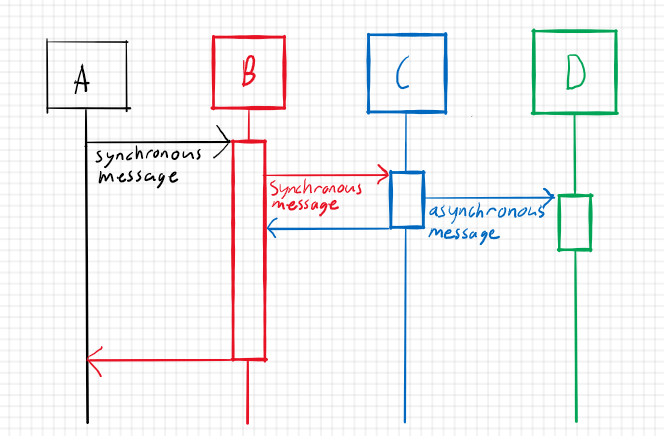 A
B
C
D
synchronous
message
Synchronous
message
asynchronous
message